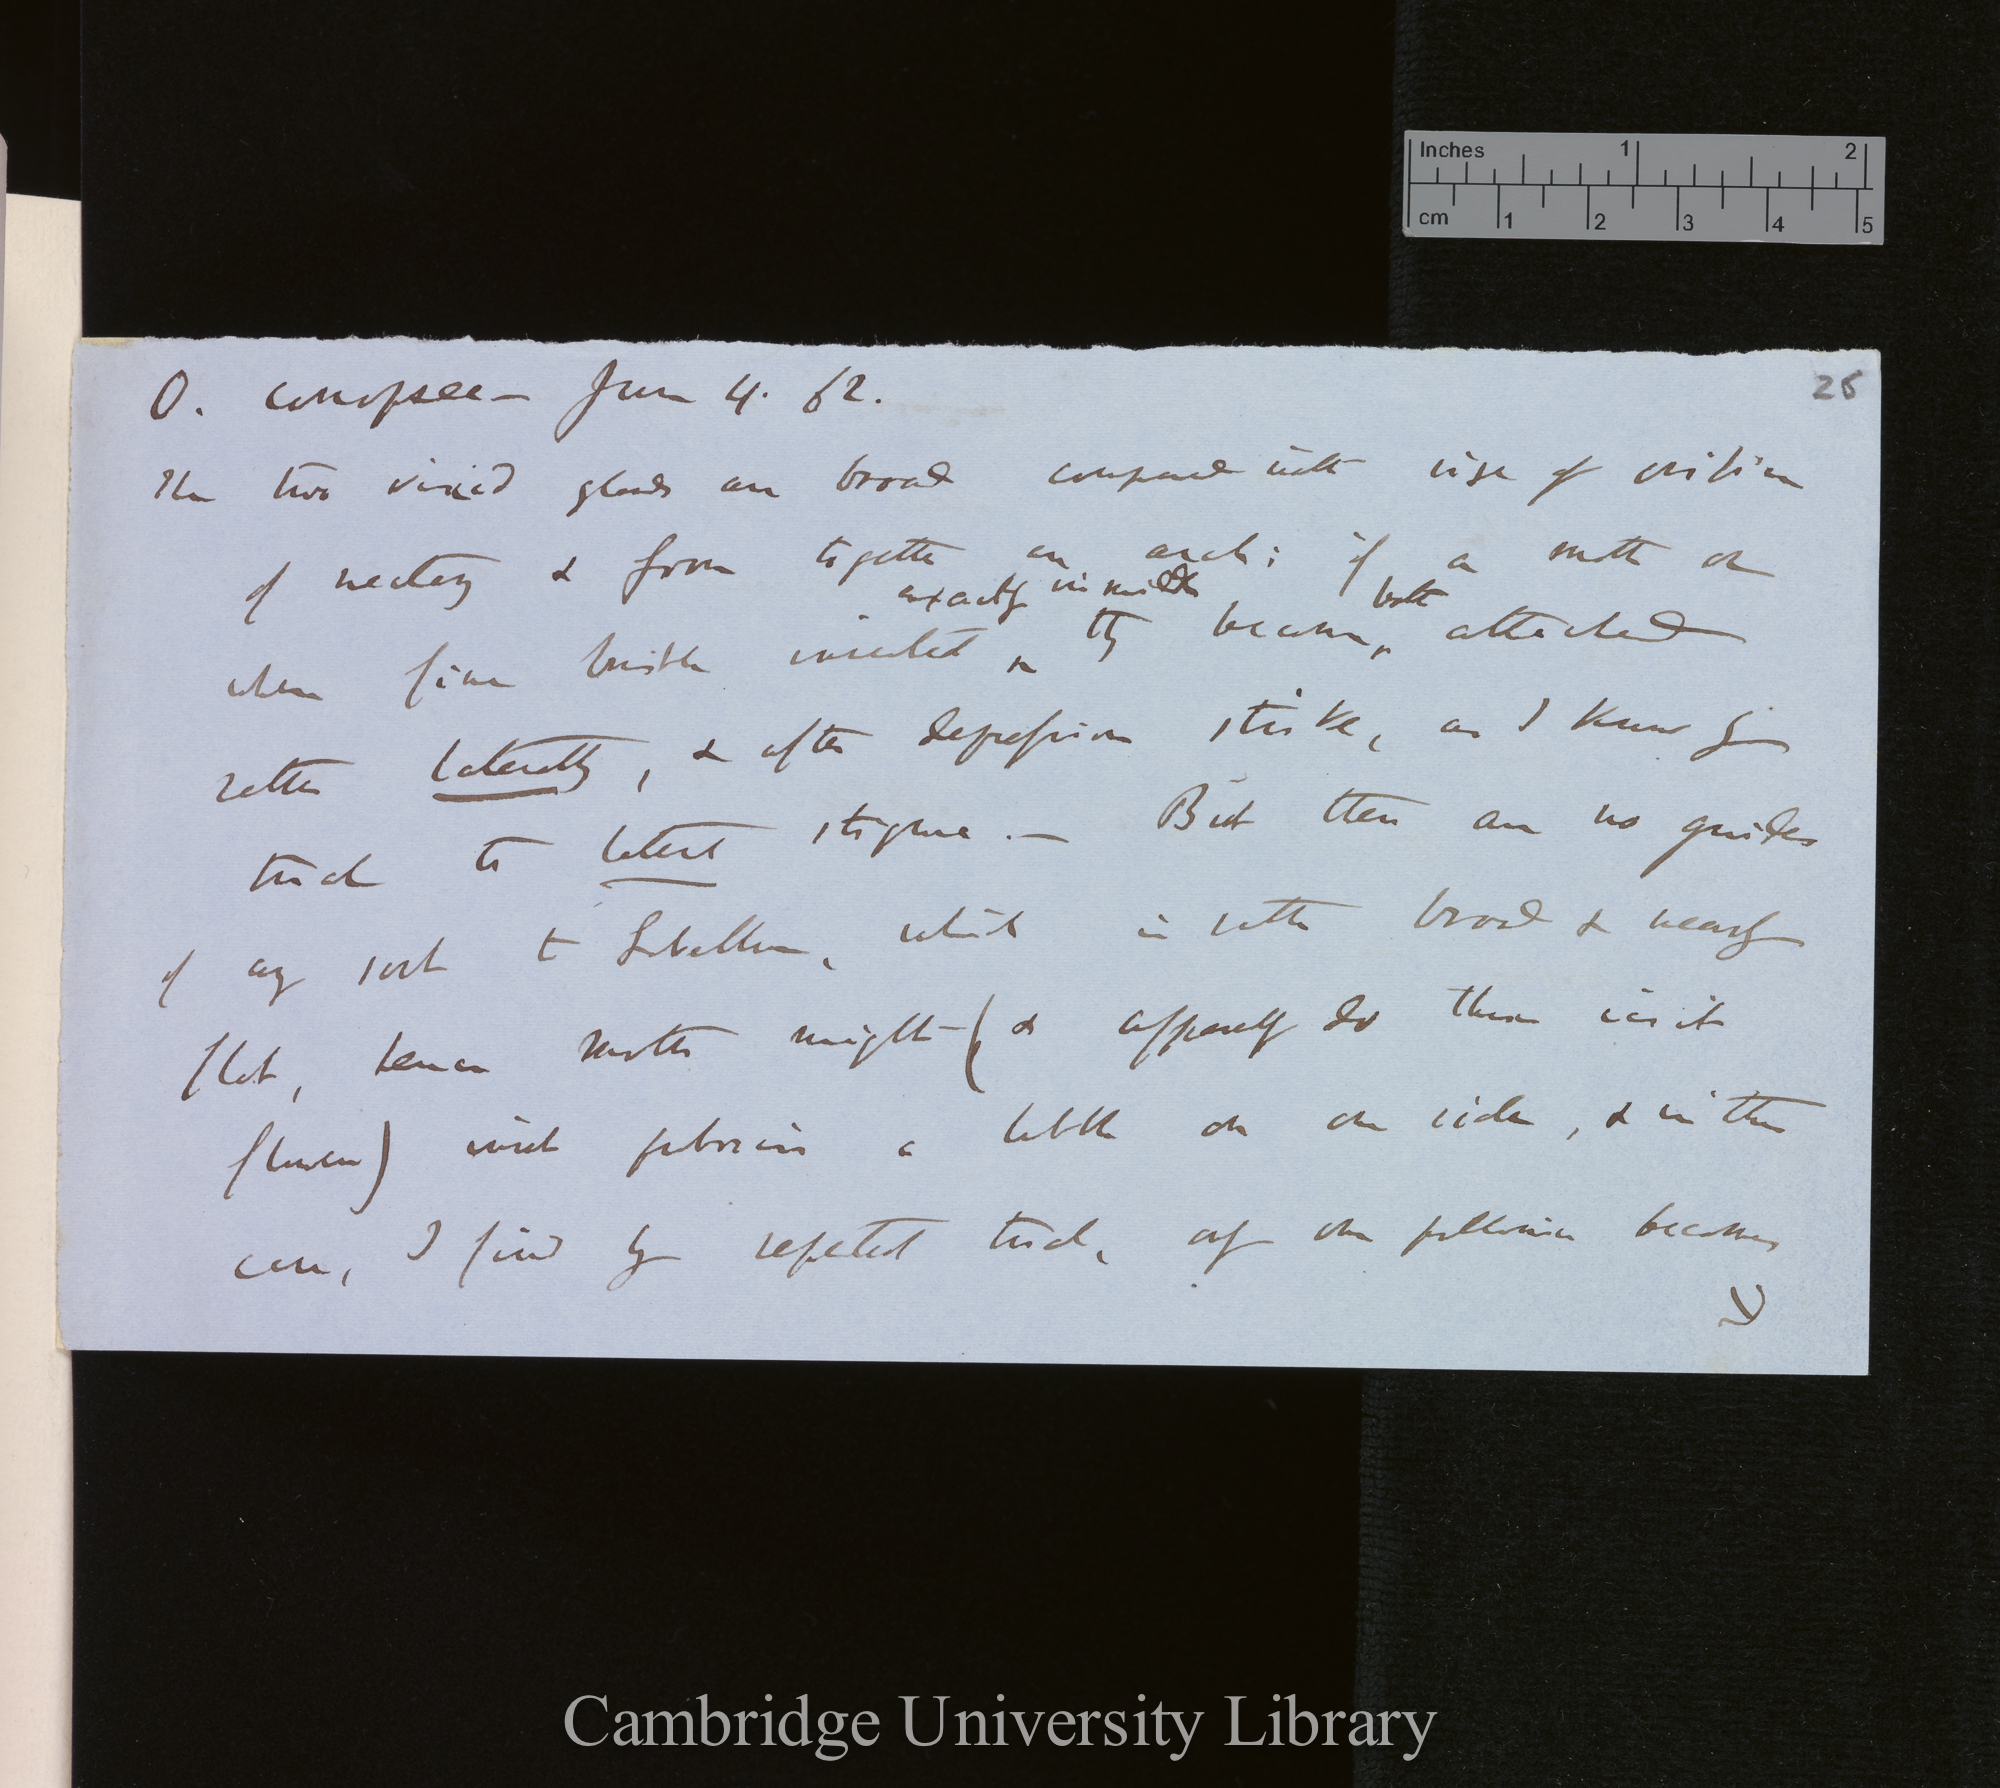 Inches 1 2
cm 1 2 3 4 5
25
O. conopsea — June 4. 62.
The two viscid glands are broad compared with size of orifice
of nectary & form together an arch; if a moth or
exactly in middle both
when fine bristle inserted ^ they become ^ attached
rather laterally, & after depression strike, as I know from
trial to lateral stigma. — But there are no guides
of any sort to Labellum, which is rather broad & nearly
flat, hence moths might (& apparently do these visit
flowers) insert proboscis a little on one side, & in this
case, I find by repeated trial, only one pollinia becomes
Cambridge University Library